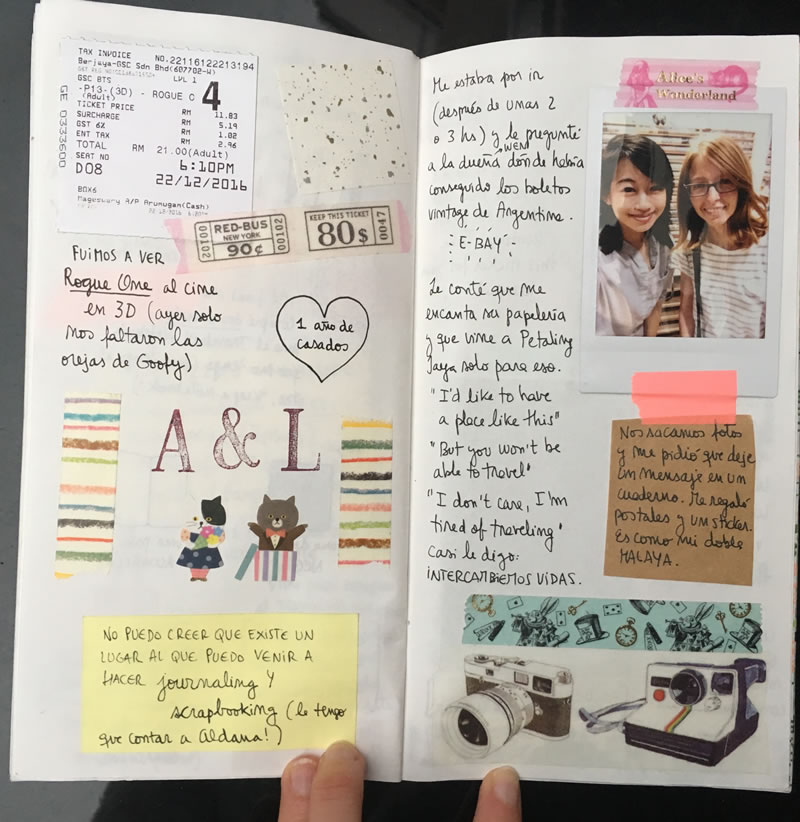 TAX INVOICE NO.22116122213194
Berjaya-GSC Sdn Bhd(607702-W)
GSC BTS LVL 1
-P13-(3D) - ROGUE O 4
(Adult)
TICKET PRICE RM 11.83
SURCHARGE RM 5.19
GST 6% RM 1.02
ENT TAX RM 2.96
TOTAL RM 21.00(Adult)
SEAT NO 6:10PM
D08 22/12/2016
BOX6
Mageswary A/P Arumugan(Cash)
GE 0333600
20100 RED-BUS 00102
NEW YORK
90¢
KEEP THIS TICKET
80$ 0047
FUIMOS A VER
Rogue One al cine
en 3D (ayer solo
nos faltaron las
orejas de Goofy)
1 año de
casados
A & L
NO PUEDO CREER QUE EXISTE UN
LUGAR AL QUE PUEDO VENIR A
HACER journaling Y
scrapbooking (le tengo
que contar a Aldana!)
Me estaba por ir
(después de unas 2
o 3 hs) y le pregunté
a la dueña dónde había
WEN
conseguido los boletos
vintage de Argentina.
E-BAY
Le conté que me
encanta su papelería
y que vine a Petaling
Jaya solo para eso.
"I'd like to have
a place like this"
"But you won't be
able to travel"
"I don't care, I'm
tired of traveling"
Casi le digo:
INTERCAMBIEMOS VIDAS.
Alice's
Wonderland
Nos sacamos fotos
y me pidió que deje
un mensaje en un
cuaderno. Me regaló
postales y un sticker.
Es como mi doble
MALAYA.